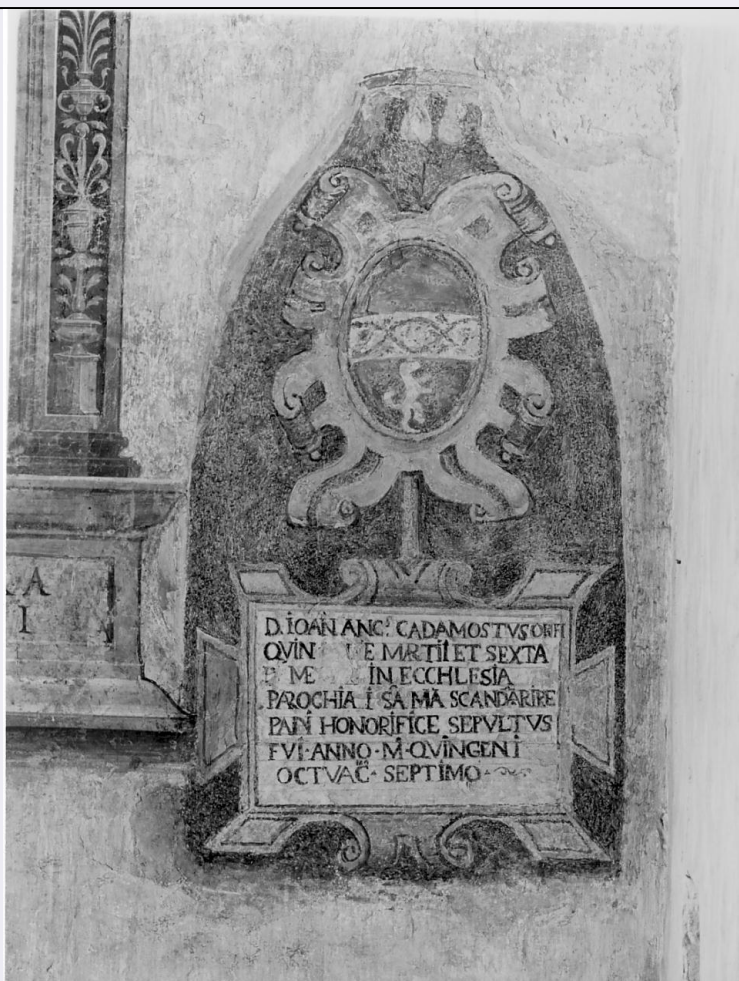 A
I
D. IOAN ANC. CADAMOSTVS
QVIN E MRTII ET SEXTA
ME IN ECCHLESIA
PAROCHIA I SA MA SCANDARIRE
PANI HONORIFICE SEPVLTVS
FVI·ANNO·M·QVINGENI
OCTVAC· SEPTIMO